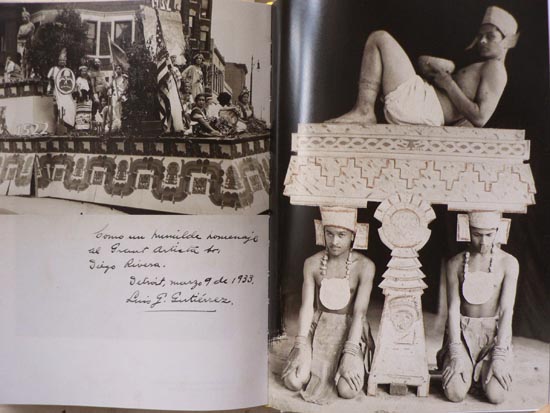 Como un humilde homenaje
al Grant Artista Sr.
Diégo Rivera.
Detroit, marzo 9 de 1933.
Luis G. Gutiérrez.